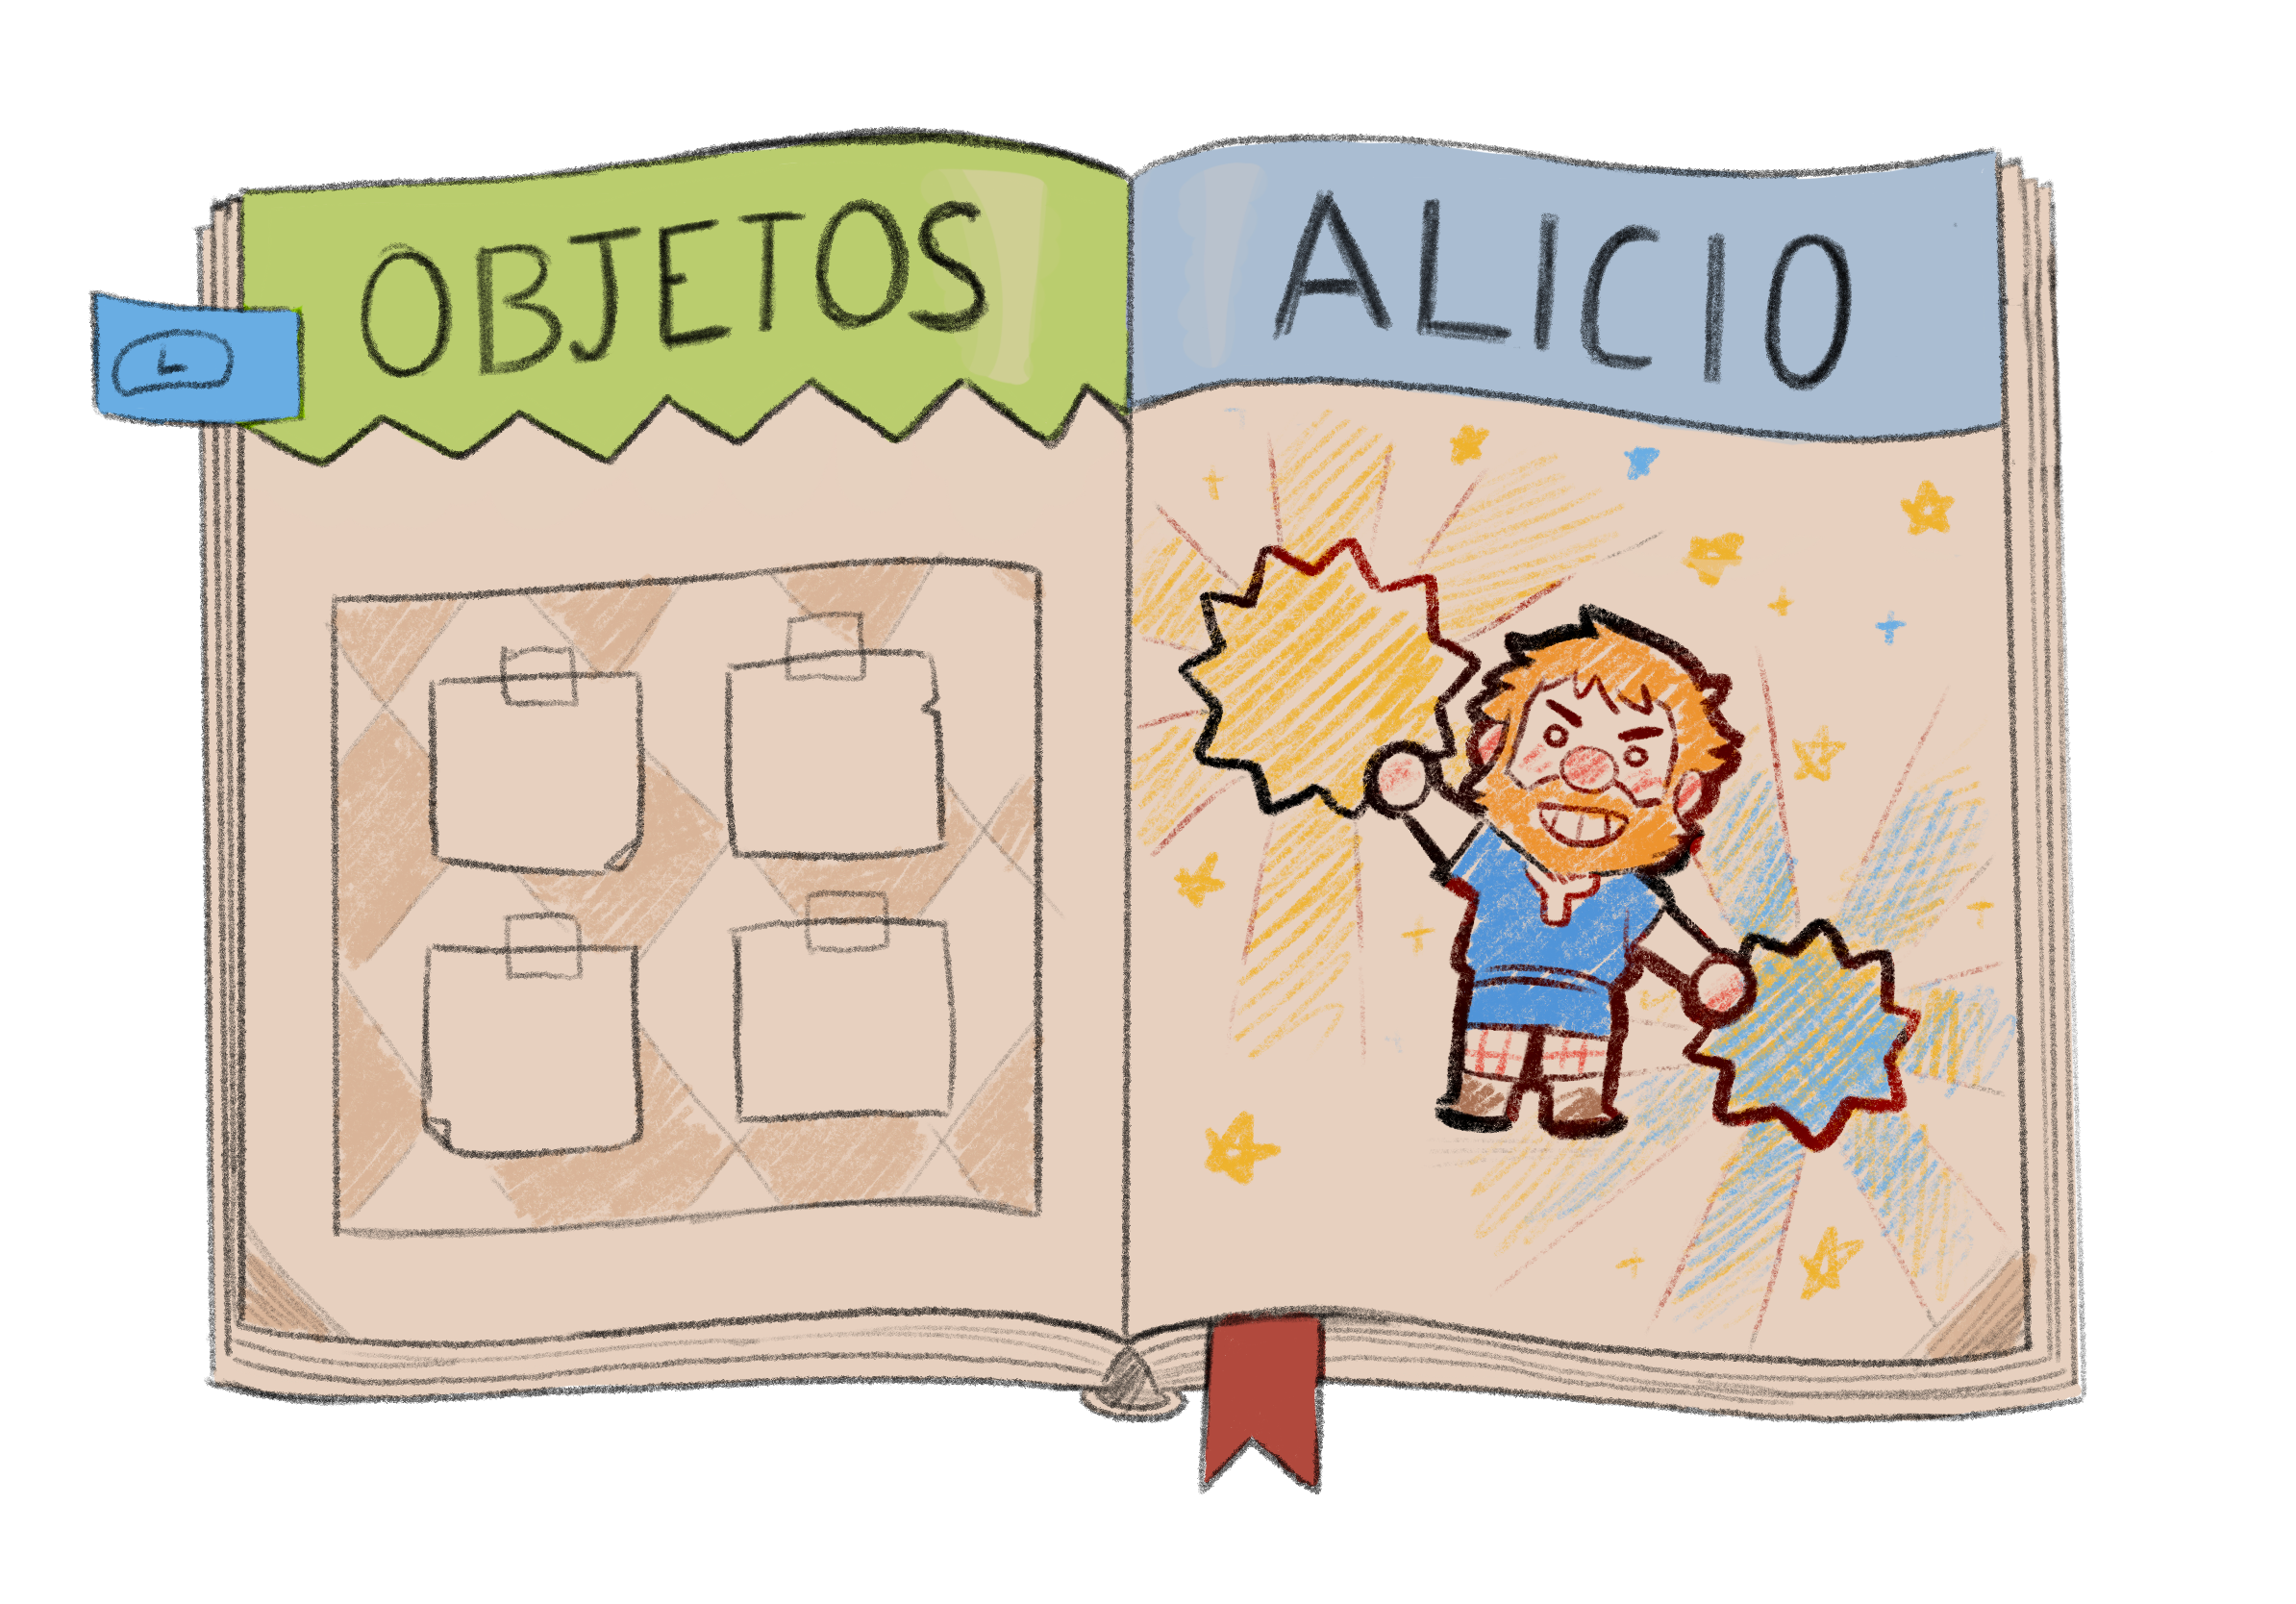 OBJETOS
ALICIO
L